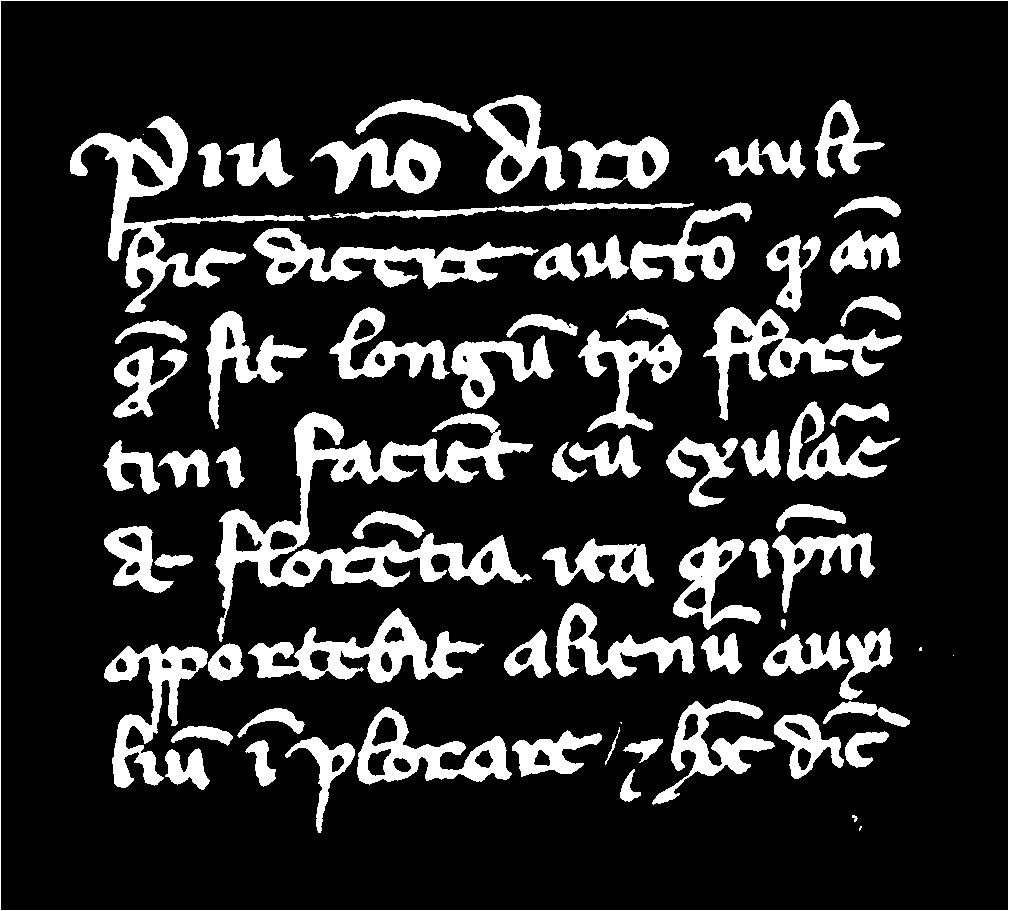 Piu nō diro vult
hic dicere auctō qđ an̄
qđ sit longū tp̄s florē
tini faciēt eū exulāē
de florētia ita qđ ip̄m
opportebit alienū auxi
liū īplorare / ⁊ hoc̄ dic̄